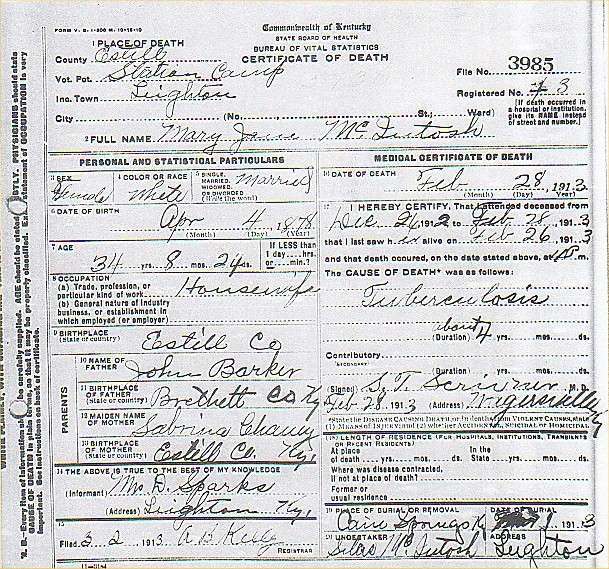 FORM V. S. 1-200 M. 10-15-10
Commonwealth of Kentucky
STATE BOARD OF HEALTH
BUREAU OF VITAL STATISTICS
CERTIFICATE OF DEATH
1 PLACE OF DEATH
County Estill
Vot. Pct. Station Camp
Inc. Town Leighton
City (No. , St.; Ward)
File No. 3985
Registered No. 3
[If death occurred in a hospital or institution, give its NAME instead of street and number.]
2 FULL NAME Mary Jane McIntosh
PERSONAL AND STATISTICAL PARTICULARS
3 SEX Female
4 COLOR OR RACE White
5 SINGLE, MARRIED, WIDOWED, OR DIVORCED (Write the word) Married
6 DATE OF BIRTH Apr 4, 1878
(Month) (Day) (Year)
7 AGE 34 yrs. 8 mos. 24 ds.
If LESS than 1 day....hrs. or....min.?
8 OCCUPATION
(a) Trade, profession, or particular kind of work Housewife
(b) General nature of industry business, or establishment in which employed (or employer)
9 BIRTHPLACE (State or country) Estill Co
PARENTS
10 NAME OF FATHER John Barker
11 BIRTHPLACE OF FATHER (State or country) Brethett Co Ky
12 MAIDEN NAME OF MOTHER Sabrina
13 BIRTHPLACE OF MOTHER (State or country) Estill Co. Ky.
14 THE ABOVE IS TRUE TO THE BEST OF MY KNOWLEDGE
(Informant) Mrs D. Sparks
(Address) Leighton Ky.
15
Filed 3 2 1913 A B Kelly
REGISTRAR
11-3184
MEDICAL CERTIFICATE OF DEATH
16 DATE OF DEATH Feb 28, 1913
(Month) (Day) (Year)
17 I HEREBY CERTIFY, That I attended deceased from
Dec 24 1912 to Feb 28, 1913
that I last saw her alive on Feb 26, 1913
and that death occured, on the date stated above, at M.
The CAUSE OF DEATH* was as follows:
Tuberculosis
about 4
(Duration) yrs. mos. ds.
Contributory
Secondary
(Duration) yrs. mos. ds.
(Signed) S. T. Scrivner, M. D.
Feb 28 1913 (Address) Ky
*State the DISEASE CAUSING DEATH, or, in deaths from VIOLENT CAUSES, state (1) MEANS OF INJURY; and (2) whether ACCIDENTAL, SUICIDAL or HOMICIDAL
18 LENGTH OF RESIDENCE (FOR HOSPITALS, INSTITUTIONS, TRANSIENTS OR RECENT RESIDENTS)
At place of death yrs. mos. ds. In the State yrs. mos. ds.
Where was disease contracted, if not at place of death?
Former or usual residence
19 PLACE OF BURIAL OR REMOVAL Cain Springs K
DATE OF BURIAL 1, 1913
20 UNDERTAKER Silas McIntosh
ADDRESS Leighton
N. B.—Every item of information should be carefully supplied. AGE should be stated EXACTLY. PHYSICIANS should state
CAUSE OF DEATH in plain terms, so that it may be properly classified. Exact statement of OCCUPATION is very
important. See instructions on back of certificate.